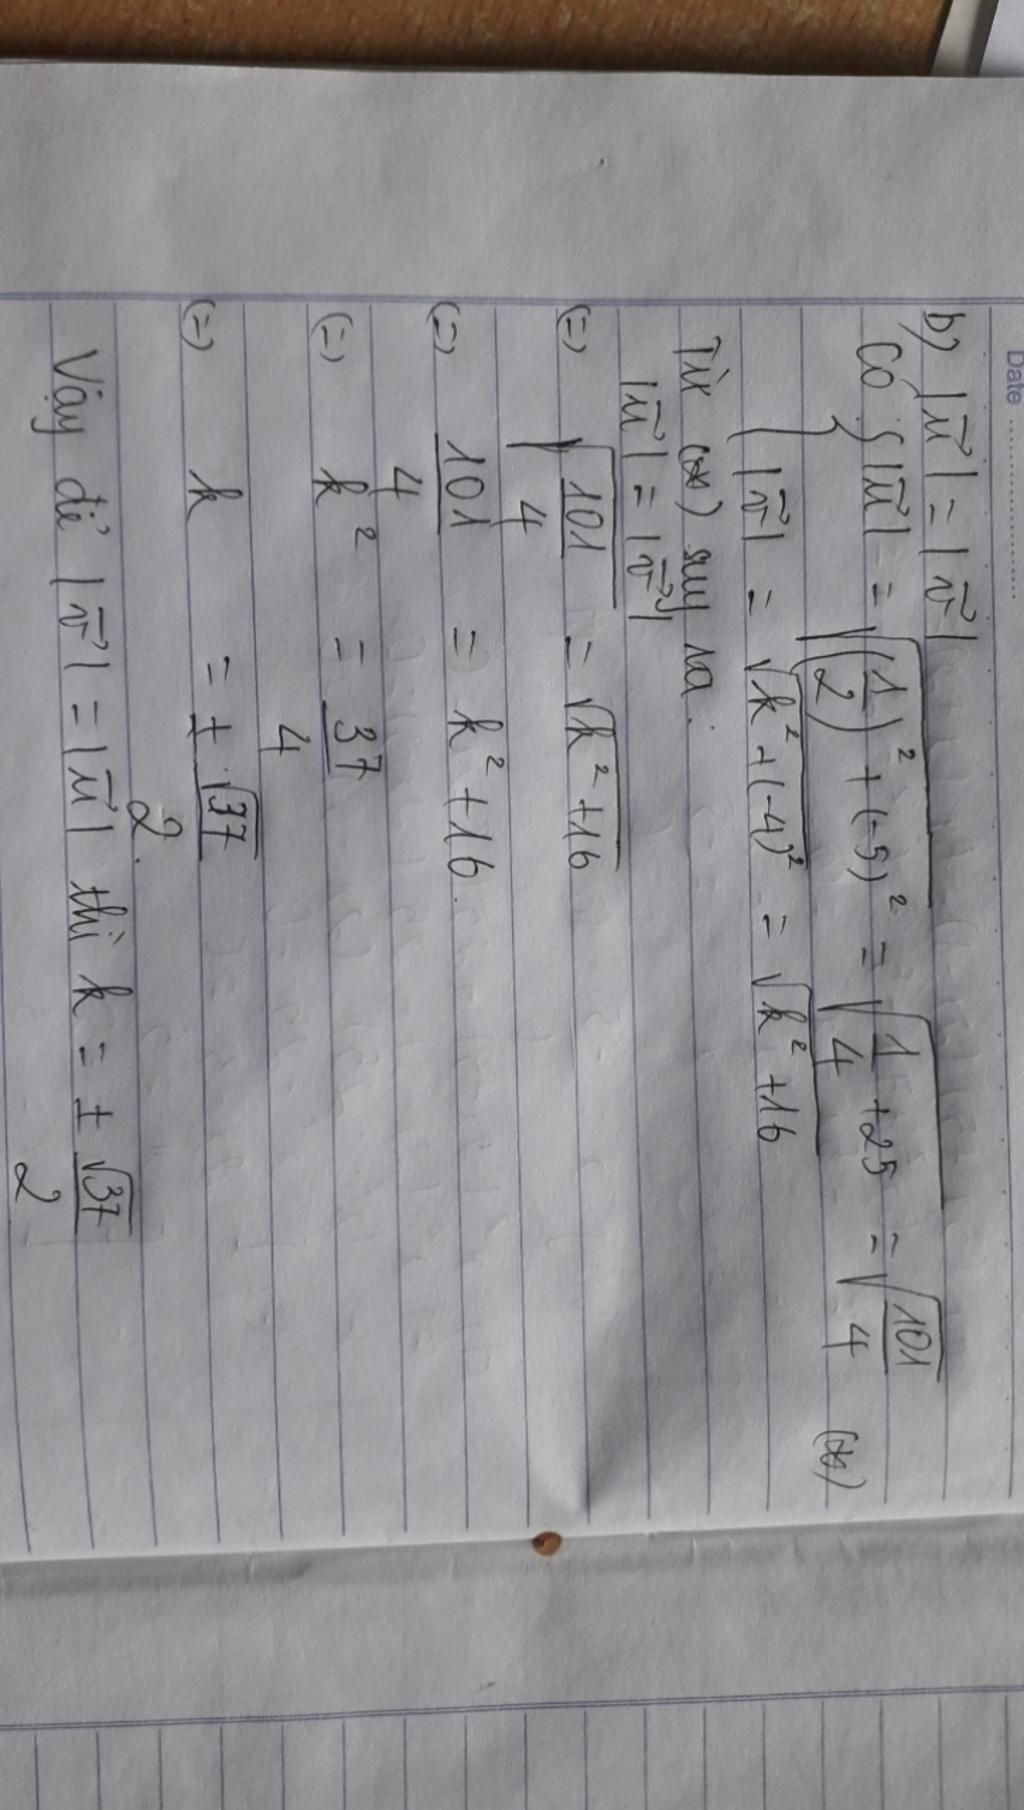 Date ....................
b) |u⃗| = |v⃗|
Có { |u⃗| = √((1/2)² + (-5)²) = √(1/4 + 25) = √(101/4) (*)
|v⃗| = √(k² + (-4)²) = √(k² + 16)
Từ (*) suy ra:
|u⃗| = |v⃗|
(=) √(101/4) = √(k² + 16)
(=) 101/4 = k² + 16.
(=) k² = 37/4
(=) k = ± √37/2.
Vậy để |v⃗| = |u⃗| thì k = ± √37/2